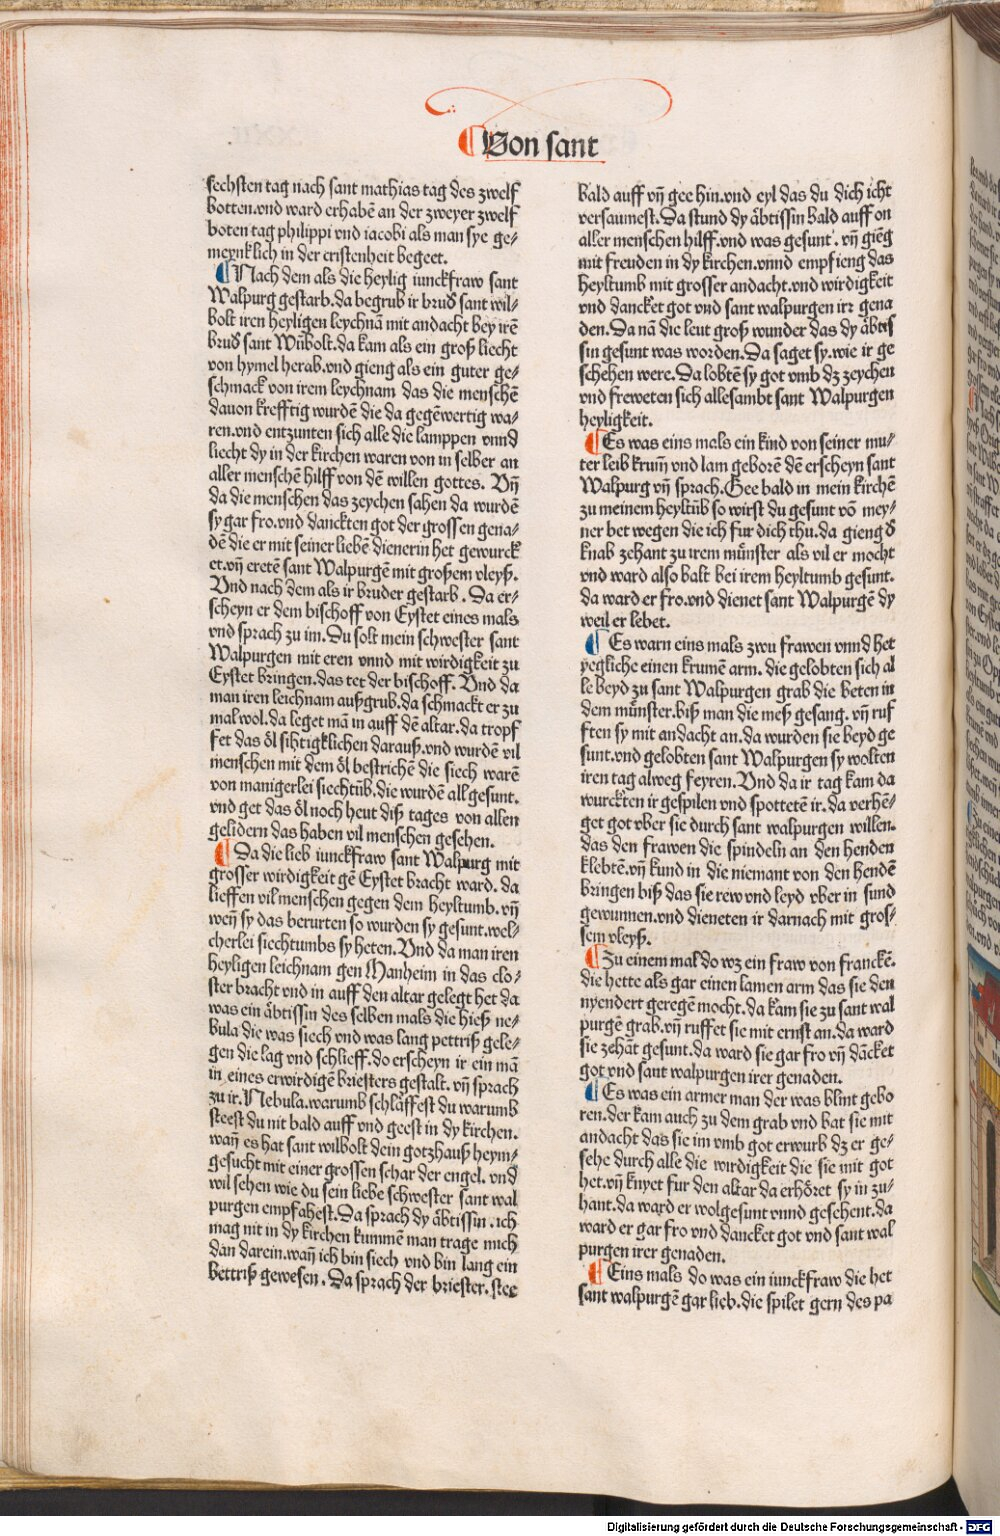 Von sant
sechsten tag nach sant mathias tag des zwelf
botten.vnd ward erhabē an der zweyer zwelf
boten tag philippi vnd iacobi als man sye ge⸗
meynklich in der cristenheit begeet.
Nach dem als die heylig iunckfraw sant
Walpurg gestarb.da begrub ir brud̾ sant wil⸗
bolt iren heyligen leychnā mit andacht bey irē
brud̾ sant Wūbolt.da kam als ein groß liecht
von hymel herab.vnd gieng als ein guter ge⸗
schmack von irem leychnam das die menschē
dauon krefftig wurdē die da gegēwertig wa⸗
ren.vnd entzunten sich alle die lamppen vnnd
liecht dy in der kirchen waren von in selber an
aller menschē hilff von dē willen gottes. Vn̄
da die menschen das zeychen sahen da wurdē
sy gar fro.vnd danckten got der grossen gena⸗
dē die er mit seiner liebē dienerin het gewurck
et.vn̄ eretē sant Walpurgē mit großem vleyß.
Vnd nach dem als ir bruder gestarb. Da er⸗
scheyn er dem bischoff von Eystet eines mals
vnd sprach zu im.Du solt mein schwester sant
Walpurgen mit eren vnnd mit wirdigkeit zu
Eystet bringen.das tet der bischoff. Vnd da
man iren leichnam außgrub.da schmackt er zu
mal wol.da leget mā in auff dē altar.da tropf
fet das öl sihtigklichen darauß.vnd wurdē vil
menschen mit dem öl bestrichē die siech warē
von manigerlei siechtūb.die wurdē all gesunt.
vnd get das öl noch heut diß tages von allen
gelidern das haben vil menschen gesehen.
Da die lieb iunckfraw sant Walpurg mit
grosser wirdigkeit gē Eystet bracht ward. da
lieffen vil menschen gegen dem heyltumb.vn̄
wen̄ sy das berurten so wurden sy gesunt.wel⸗
cherlei siechtumbs sy heten. Vnd da man iren
heyligen leichnam gen Manheim in das clo⸗
ster bracht vnd in auff den altar gelegt het da
was ein äbtissin des selben mals die hieß ne⸗
bula die was siech vnd was lang pettriß gele⸗
gen die lag vnd schlieff.do erscheyn ir ein mā
in eines erwirdigē briesters gestalt. vn̄ sprach
zu ir.Nebula.warumb schläffest du warumb
steest du nit bald auff vnd geest in dy kirchen.
wan̄ es hat sant wilbolt dein gotzhauß heym⸗
gesucht mit einer grossen schar der engel. vnd
wil sehen wie du sein liebe schwester sant wal
purgen empfahest.Da sprach dy äbtissin.ich
mag nit in dy kirchen kummē man trage mich
dan darein.wan̄ ich bin siech vnd bin lang ein
bettriß gewesen. Da sprach der briester.stee
bald auff vn̄ gee hin.vnd eyl das du dich icht
versaumest.Da stund dy äbtissin bald auff on
aller menschen hilff.vnd was gesunt. vn̄ giēg
mit freuden in dy kirchen.vnnd empfieng das
heyltumb mit grosser andacht.vnd wirdigkeit
vnd dancket got vnd sant walpurgen irz gena
den.Da nā die leut groß wunder das dy äbtis
sin gesunt was worden.Da saget sy.wie ir ge
schehen were. Da lobtē sy got vmb dz zeychen
vnd freweten sich allesambt sant Walpurgen
heyligkeit.
Es was eins mals ein kind von seiner mu⸗
ter leib krum̄ vnd lam geborē dē erscheyn sant
Walpurg vn̄ sprach.Gee bald in mein kirchē
zu meinem heyltūb so wirst du gesunt vō mey⸗
ner bet wegen die ich fur dich thu.da gieng d̾
knab zehant zu irem münster als vil er mocht
vnd ward also balt bei irem heyltumb gesunt.
da ward er fro.vnd dienet sant Walpurgē dy
weil er lebet.
Es warn eins mals zwu frawen vnnd het
yegliche einen krumē arm. die gelobten sich al
le beyd zu sant Walpurgen grab die beten in
dem münster.biß man die meß gesang. vn̄ ruf
ften sy mit andacht an.da wurden sie beyd ge
sunt.vnd gelobten sant Walpurgen sy wolten
iren tag alweg feyren. Vnd da ir tag kam da
wurckten ir gespilen vnd spottetē ir.da verhē⸗
get got vber sie durch sant walpurgen willen.
das den frawen die spindeln an den henden
klebtē.vn̄ kund in die niemant von den hendē
bringen biß das sie rew vnd leyd vber ir sund
gewunnen.vnd dieneten ir darnach mit gros⸗
sem vleyß.
Zu einem mal do wz ein fraw von franckē.
die hette als gar einen lamen arm das sie den
nyendert geregē mocht.da kam sie zu sant wal
purgē grab.vn̄ ruffet sie mit ernst an.da ward
sie zehāt gesunt.da ward sie gar fro vn̄ dācket
got vnd sant walpurgen irer genaden.
Es was ein armer man der was blint gebo
ren.der kam auch zu dem grab vnd bat sie mit
andacht das sie im vmb got erwurb dz er ge⸗
sehe durch alle die wirdigkeit die sie mit got
het.vn̄ knyet fur den altar da erhöret sy in zu⸗
hant.da ward er wolgesunt vnnd gesehent.da
ward er gar fro vnd dancket got vnd sant wal
purgen irer genaden.
Eins mals do was ein iunckfraw die het
sant walpurgē gar lieb.die spilet gern des pa
Digitalisierung gefördert durch die Deutsche Forschungsgemeinschaft - DFG